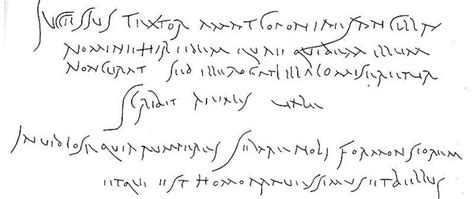 Successus textor amat coponiaes ancilla
nomine Hiredem quae quidem illum
non curat sed ille rogat illa comiseretur
scribit rivalis vale
Invidiose quia rumperis sectari noli formonsiorem
et qui est homo pravessimus et bellus